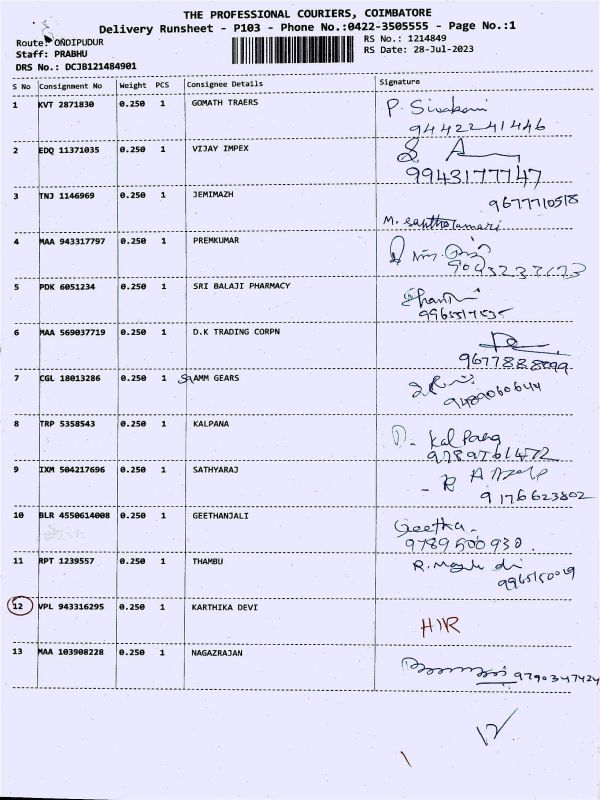 THE PROFESSIONAL COURIERS, COIMBATORE
Delivery Runsheet - P103 - Phone No.:0422-3505555 - Page No.:1
Route: ONDIPUDUR
RS No.: 1214849
Staff: PRABHU
RS Date: 28-Jul-2023
DRS No.: DCJB121484901
S No Consignment No Weight PCS Consignee Details Signature
1 KVT 2871830 0.250 1 GOMATH TRAERS P. Sivakami
9442241446
2 EDQ 11371035 0.250 1 VIJAY IMPEX
9943177747
3 TNJ 1146969 0.250 1 JEMIMAZH 9677710518
M.
4 MAA 943317797 0.250 1 PREMKUMAR
5 PDK 6051234 0.250 1 SRI BALAJI PHARMACY
6 MAA 569037719 0.250 1 D.K TRADING CORPN
9677888099
7 CGL 18013286 0.250 1 AMM GEARS
9489060644
8 TRP 5358543 0.250 1 KALPANA
9789761472
9 IXM 504217696 0.250 1 SATHYARAJ
9176623802
10 BLR 4550614008 0.250 1 GEETHANJALI Geetha.
9789500930.
11 RPT 1239557 0.250 1 THAMBU
12 VPL 943316295 0.250 1 KARTHIKA DEVI
13 MAA 103908228 0.250 1 NAGAZRAJAN
9790347424
12